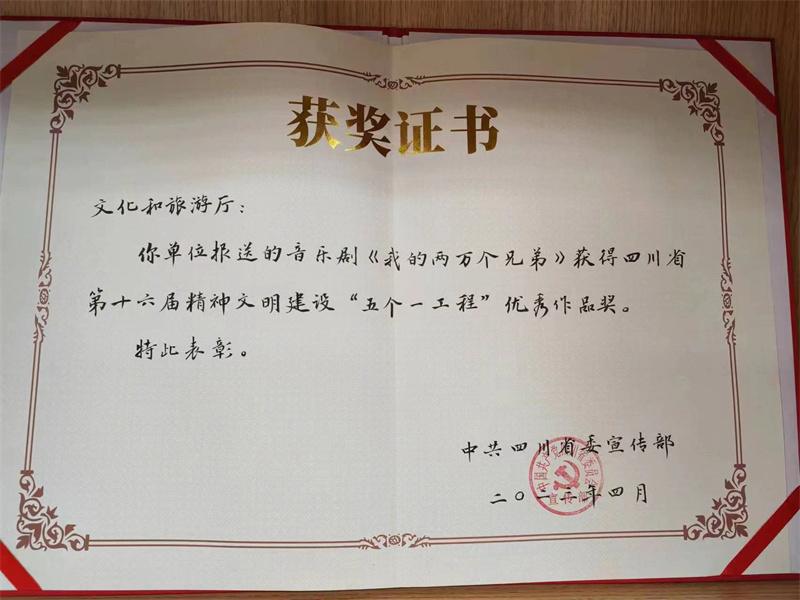 获奖证书
文化和旅游厅：
你单位报送的音乐剧《我的两万个兄弟》获得四川省
第十六届精神文明建设“五个一工程”优秀作品奖。
特此表彰。
中共四川省委宣传部
二〇二二年四月